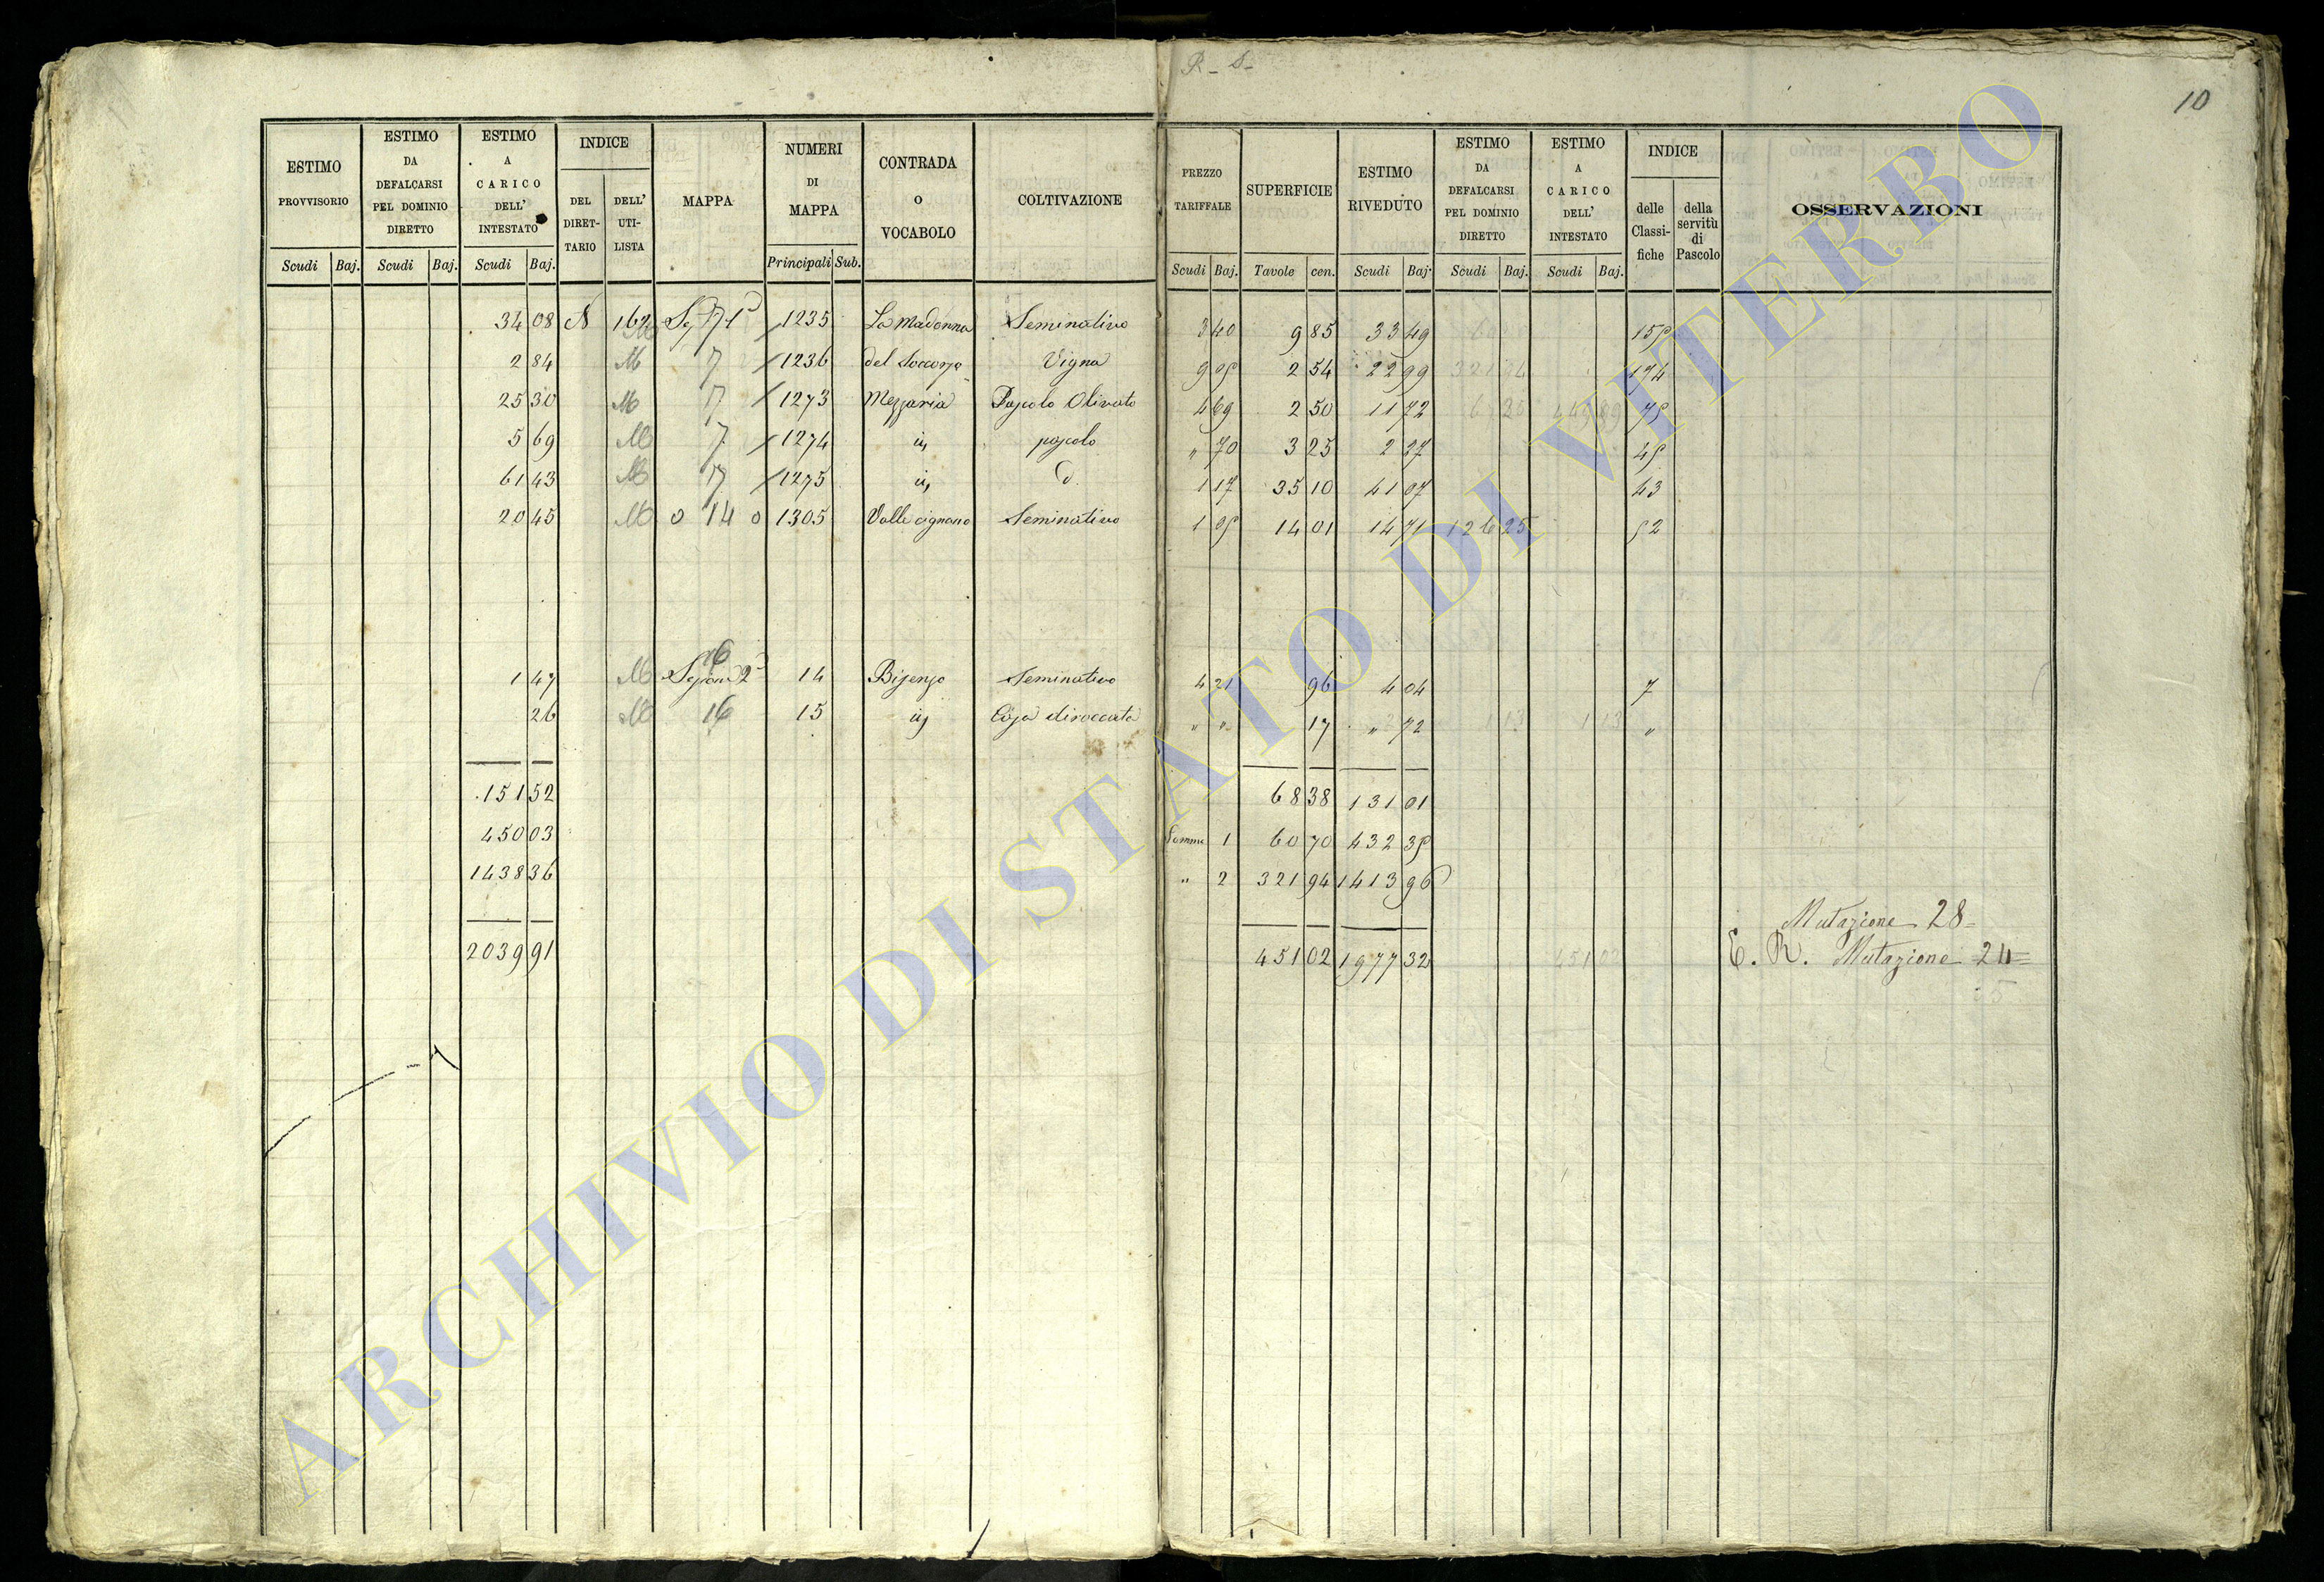 R - S - 10
ESTIMO PROVVISORIO Scudi Baj.
ESTIMO DA DEFALCARSI PEL DOMINIO DIRETTO Scudi Baj.
ESTIMO A CARICO DELL' INTESTATO Scudi Baj.
INDICE DEL DIRETTARIO DELL' UTILISTA
MAPPA
NUMERI DI MAPPA Principali Sub.
CONTRADA O VOCABOLO
COLTIVAZIONE
PREZZO TARIFFALE Scudi Baj.
SUPERFICIE Tavole cen.
ESTIMO RIVEDUTO Scudi Baj.
ESTIMO DA DEFALCARSI PEL DOMINIO DIRETTO Scudi Baj.
ESTIMO A CARICO DELL' INTESTATO Scudi Baj.
INDICE delle Classifiche della servitù di Pascolo
OSSERVAZIONI
34 08 162 M 7 1235 La Madonna Seminativo 3 40 9 85 33 49 158
2 84 M 7 1236 del Soccorso Vigna 9 05 2 54 22 99 174
25 30 M 7 1273 Mezzaria Pascolo Olivato 4 69 2 50 11 72 78
5 69 M 7 1274 id pascolo " 70 3 25 2 27 48
61 43 M 7 1275 id d 1 17 35 10 41 07 43
20 45 M o 14 o 1305 Valle cignano Seminativo 1 05 14 01 14 71 126 25 52
16
1 47 M Sezione 2a 14 Bisenzo Seminativo 4 21 96 4 04 7
26 M 16 15 id Casa diroccata " " 17 " 72 1 13 1 13 "
151 52 68 38 131 01
450 03 Somma 1 60 70 432 35
1438 36 " 2 321 94 1413 96
Mutazione 28
2039 91 451 02 1977 32 451 02 E. R. Mutazione 24
5
ARCHIVIO DI STATO DI VITERBO